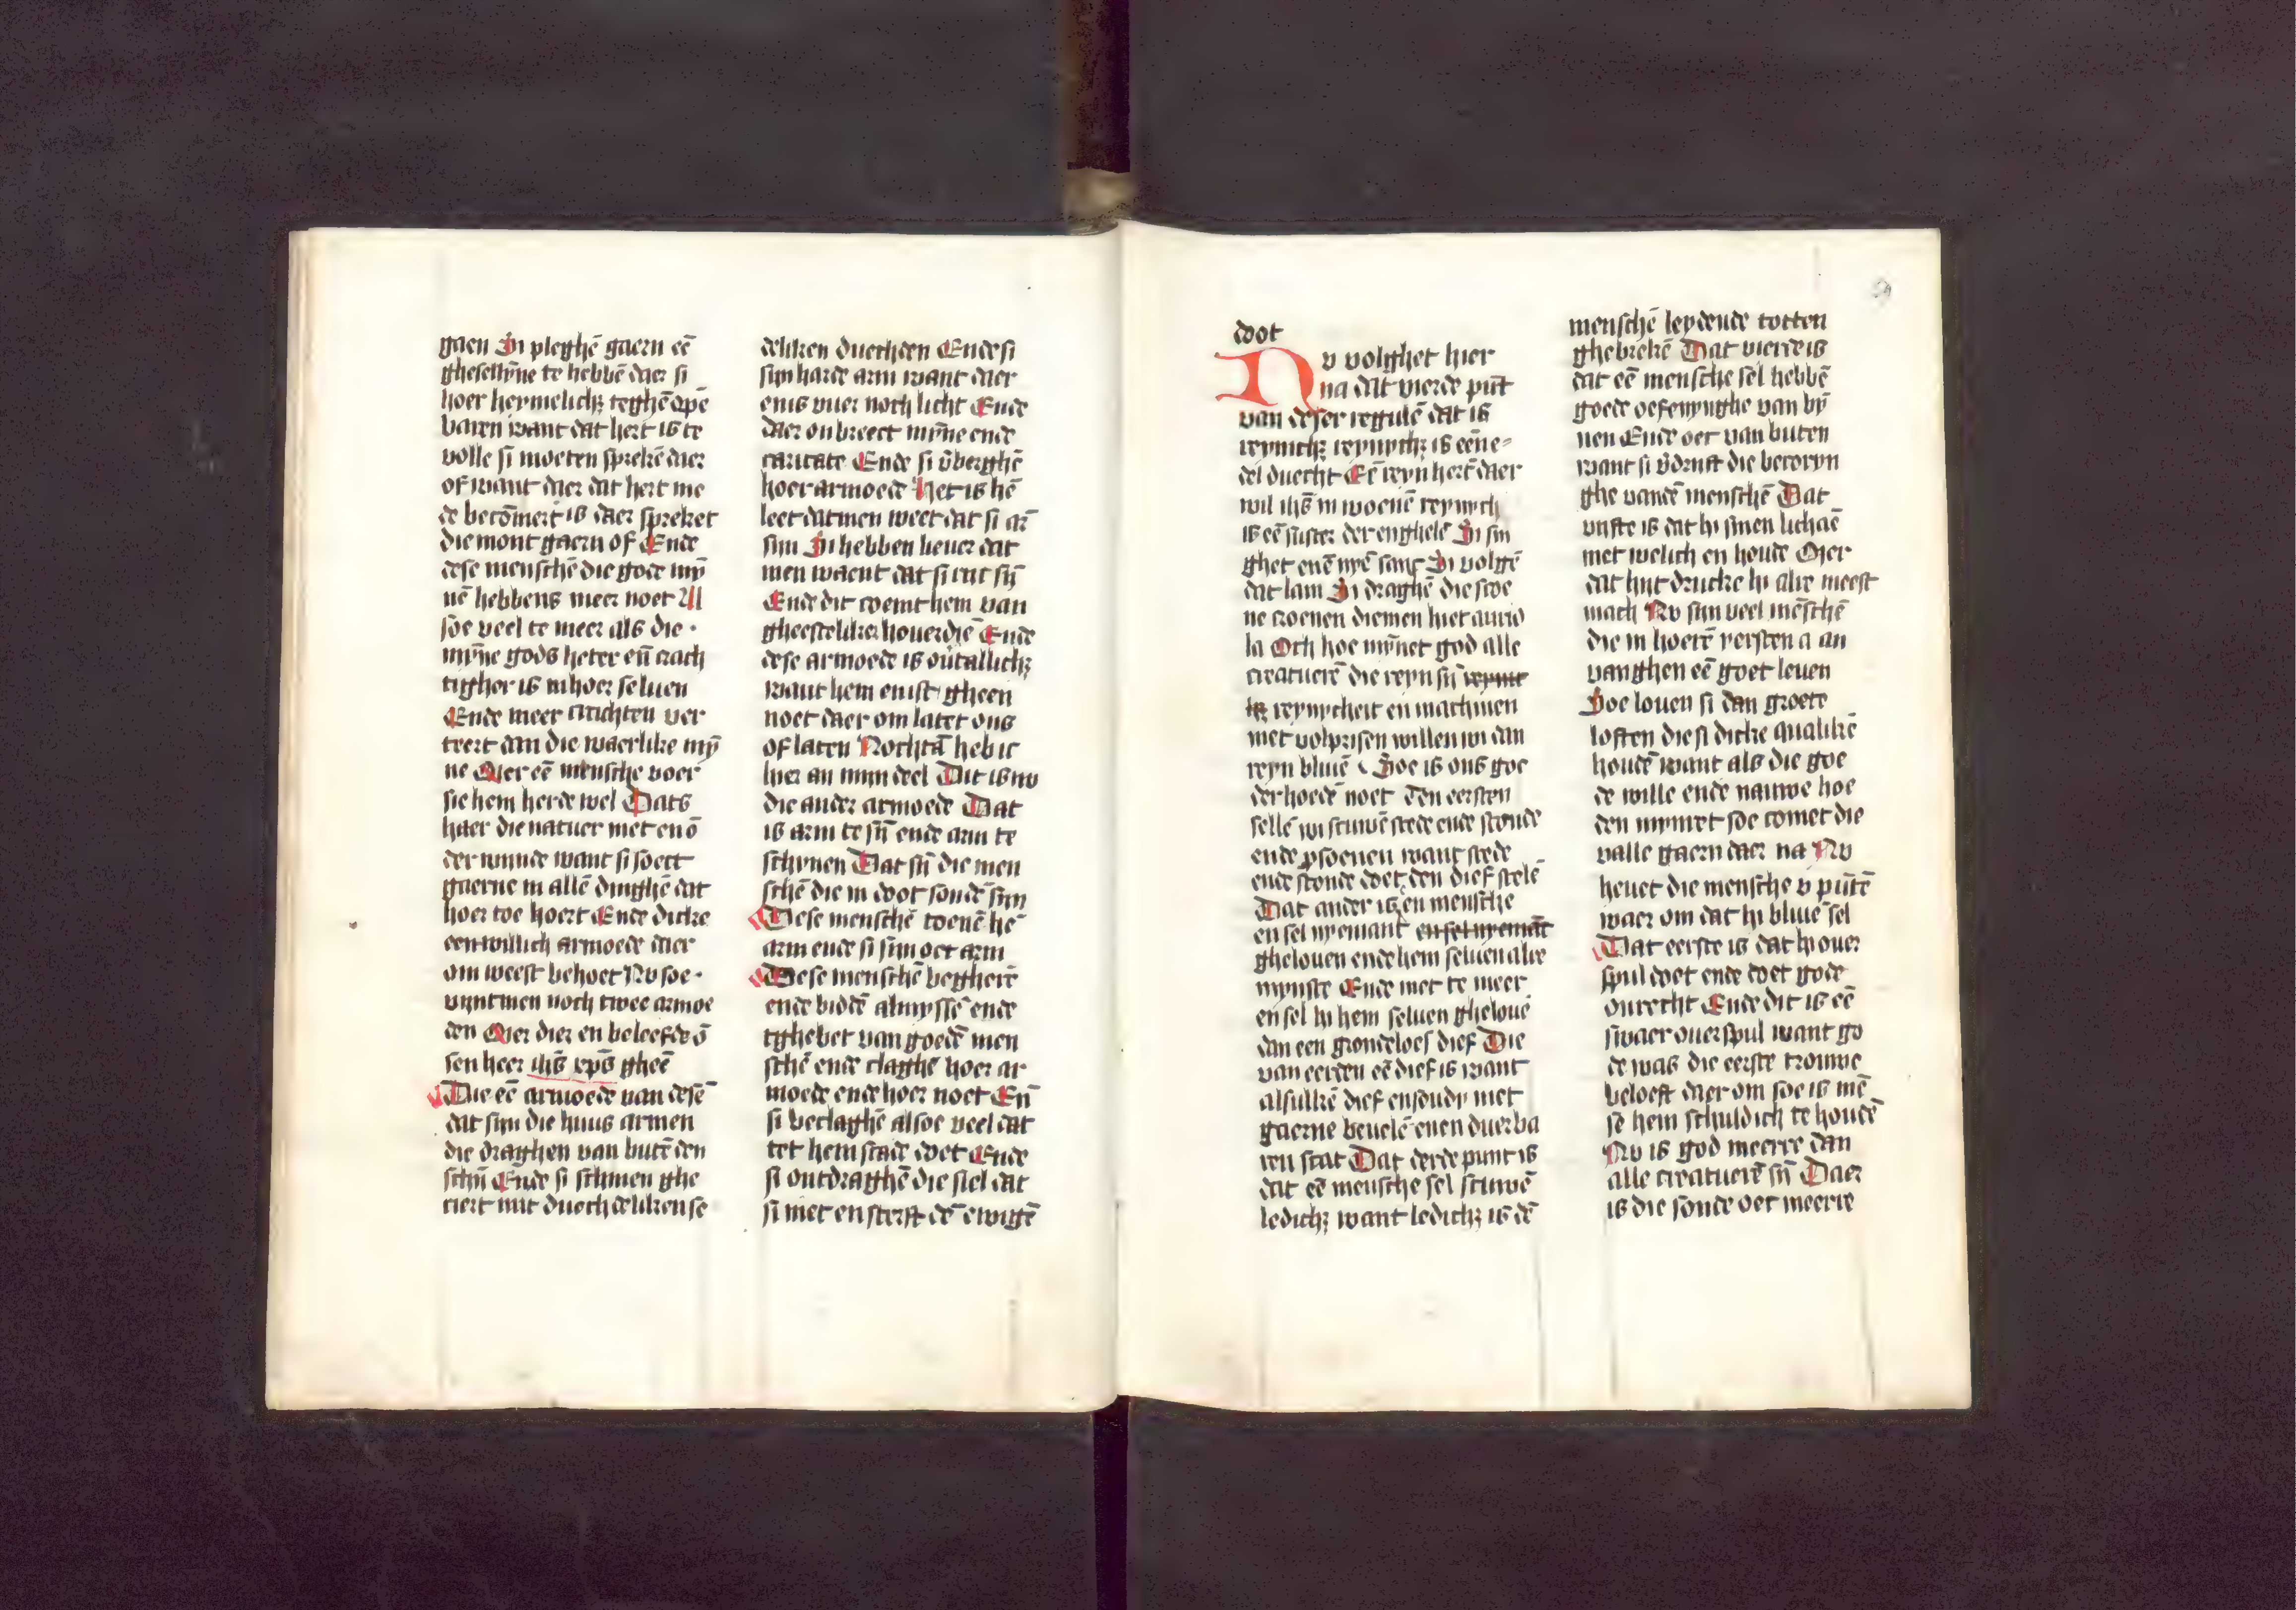 gaen Si pleghē gaern eē
ghesellyne te hebbē daer si
hoer heymelichz teghē opē
baren want dat hert is te
volle si moeten sprekē daer
of want daer dat hert me
de becōmert is daer spreket
die mont gaern of Ende
dese menschē die gode mȳ
nē hebbens meer noet Al
soe veel te meer als die ·
mȳne gods heter eñ crach
tigher is in hoer seluen
Ende meer crachten ver
teert dan die waerlike mȳ
ne Mer eē mensche voer
sie hem herde wel Dats
haer die natuer niet en ō
der wynde want si soect
gaerne in allē dinghē dat
hoer toe hoert Ende dicke
een willich armoede daer
om weest behoet Nv soe ·
vynt men noch twee armoe
den Mer dier en beleefde ō
sen heer ihs xps gheē
Die eē armoede van desē
dat sijn die huus armen
die draghen van butē den
schȳ Ende si schinen ghe
ciert mit duechdeliken se
deliken duechden Ende si
sijn harde arm want daer
enis vuer noch licht Ende
daer onbreect mȳne ende
caritate Ende si v̄berghē
hoer armoede Het is hē
leet datmen weet dat si ar̄
sijn Si hebben lieuer dat
men waent dat si rijc sȳ
Ende dit coemt hem van
gheesteliker houerdiē Ende
dese armoede is ontallichz
want hem enist gheen
noet daer om latet ons
of laten Nochtā heb ic
hier an mijn deel Dit is nv
die ander armoede Dat
is arm te sȳ ende arm te
schynen Dat sȳ die men
schē die in doot sondē sijn
Dese menschē toenē hē
arm ende si sijn oec arm
Dese menschē begherē
ende biddē almyssē ende
tghebet van goedē men
schē ende claghē hoer ar
moede ende hoer noet Eñ
si beclaghē alsoe veel dat
tet hem stade doet Ende
si ontdraghē die siel dat
si niet en sterft dē ewigē
doot
Nv volghet hier
na dat vierde pūt
van deser regulē dat is
reynichz reynychz is eē ne-
del duecht Eē reyn hert daer
wil ihs in woenē reynych
is eē suster der enghelē Si sin
ghet enē nyē sanc Si volgē
dat lam Si draghē die scoe
ne croenen diemen hiet aurio
la Och hoe mȳnet god alle
creatuerē die reyn sȳ reynic
hz reynycheit en machmen
niet volprisen willen wi dan
reyn bliuē Soe is ons goe
der hoedē noet Den eersten
sellē wi scuwē stede ende stonde
ende psoenen want stede
ende stonde doet den dief stelē
Dat ander is en mensche
en sel nyemant en sel nyemāt
ghelouen ende hem seluen alre
mynste Ende niet te meer
en sel hi hem seluen ghelouē
dan een grondeloes dief Die
van eerden eē dief is want
alsulkē dief en soudi niet
gaerne beuelē enen duerba
ren scat Dat derde punt is
dat eē mensche sel scuwē
ledichz want ledichz is dē
menschē leydende totten
ghebrekē Dat vierde is
dat eē mensche sel hebbē
goede oefenynghe van by
nen Ende oec van buten
want si v̄druft die becoryn
ghe vandē menschē Dat
vijfte is dat hi sinen lichāē
niet welich en houde Mer
dat hijt drucke hi alre meest
mach Nv sijn veel mēschē
die in hoerē yersten a an
vanghen eē goet leuen
Soe louen si dan groete
loften die si dicke qualikē
houdē want als die goe
de wille ende nauwe hoe
den mymet soe comet die
valle gaern daer na Nv
heuet die mensche v pūtē
waer om dat hi bliuē sel
Dat eerste is dat hi ouer
spul doet ende doet gode
onrecht Ende dit is eē
swaer ouerspul want go
de was die eerste trouwe
beloeft daer om soe is mē
se hem schuldich te houdē
Nv is god meerre dan
alle creatuerē sȳ Daer
is die sonde oec meerre